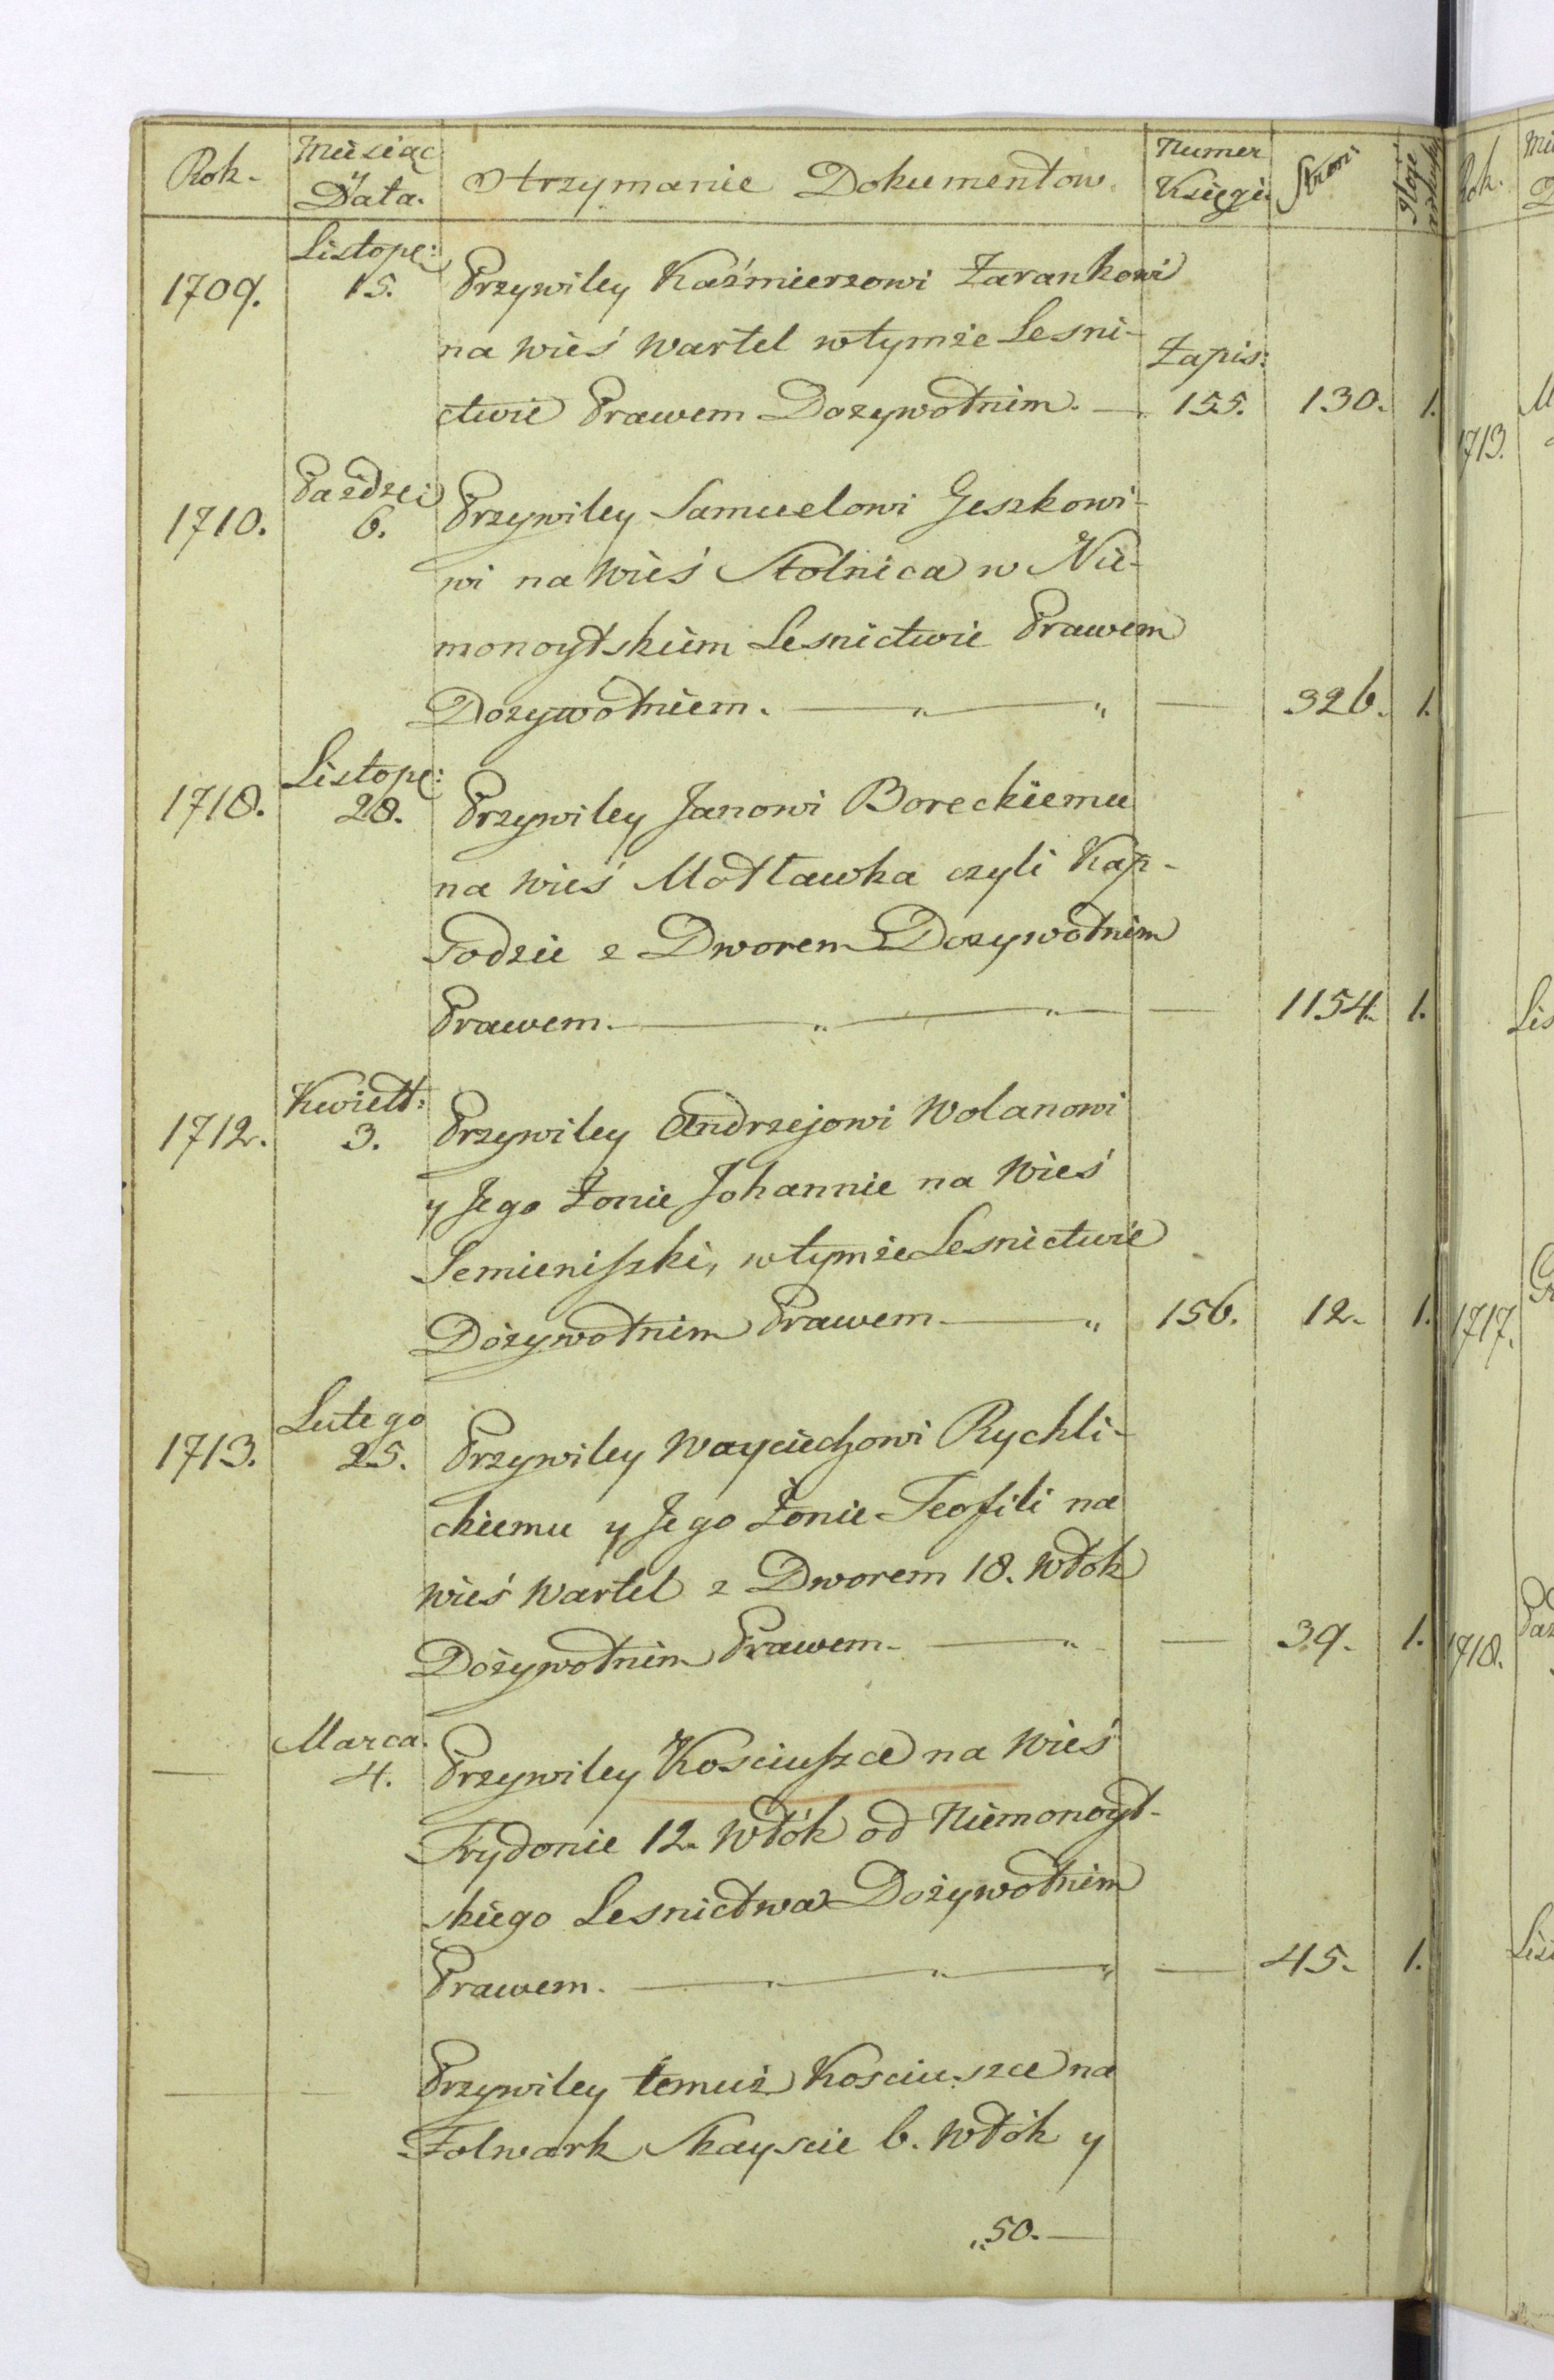 Rok. Miesiąc y Data. Otrzymanie Dokumentow. Numer Księgi. Stron:
Listope:
1709. 15. Przywiley Kaźmierzowi Zarankowi
na wieś Wartel w tymże Lesni-
Zapis:
ctwie Prawem Dozywotnim. — 155. 130. 1.
Paździe:
1710. 6. Przywiley Samuelowi Geszkowi-
wi na Wieś Stolnica w Nie-
monoytskiem Lesnictwie Prawem
Dozywotniem. — „ — „ — 326. 1.
Listope:
1710. 28. Przywiley Janowi Boreckiemu
na wieś Motławka czyli Kap-
łodzie z Dworem Dozywotnim
Prawem. — „ — „ — 1154. 1.
Kwiett:
1712. 3. Przywiley Andrzejowi Wolanowi
y Jego Żonie Johannie na Wieś
Semieniszki, w tymże Lesnictwie
Dożywotnim Prawem — „ 156. 12. 1.
Lutego
1713. 25. Przywiley Wayciechowi Rychli-
ckiemu y Jego Żonie Teofili na
wieś Wartel z Dworem 18. Włok
Dożywotnim Prawem. — „ — 39. 1.
Marca.
— 4. Przywiley Kosciuszce na Wieś
Frydonie 12. Włók od Niemonoyt-
skiego Lesnictwa Dożywotnim
Prawem. — „ — „ — „ — 45. 1.
— — Przywiley temuż Kosciuszce na
Folwark Skayscie 6. Włók y
„50. —
Rok.
1713.
Lis
1717.
1718.